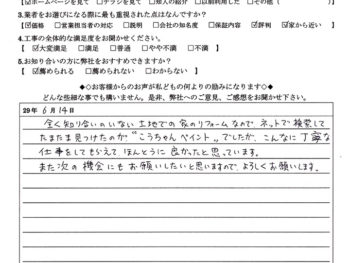 ☑ホームページを見て □チラシを見て □知人の紹介 □以前利用した □その他（
3.業者をお選びになる際に最も重視された点はなんですか？
☑価格 □営業担当者の対応 □説明 □会社の知名度 □保証内容 ☑評判 ☑家から近い
4.工事の全体的な満足度をお聞かせください。
☑大変満足 □満足 □普通 □やや不満 □不満
5.お知り合いの方に弊社をおすすめできますか？
☑薦められる □薦められない □わからない
◆◇お客様からのお声が私どもの何よりの励みになります◆◇
どんな些細な事でも構いません。是非、弊社へのご意見、ご感想をお聞かせ下さい。
29年 6月 14日
全く知り合いのいない土地での家のリフォームなので ネットで検索して
たまたま見つけたのが"こうちゃんペイント"でしたが、こんなに丁寧な
仕事をしてもらえて ほんとうに良かったと思っています。
また次の機会にもお願いしたいと思いますので よろしくお願いします。